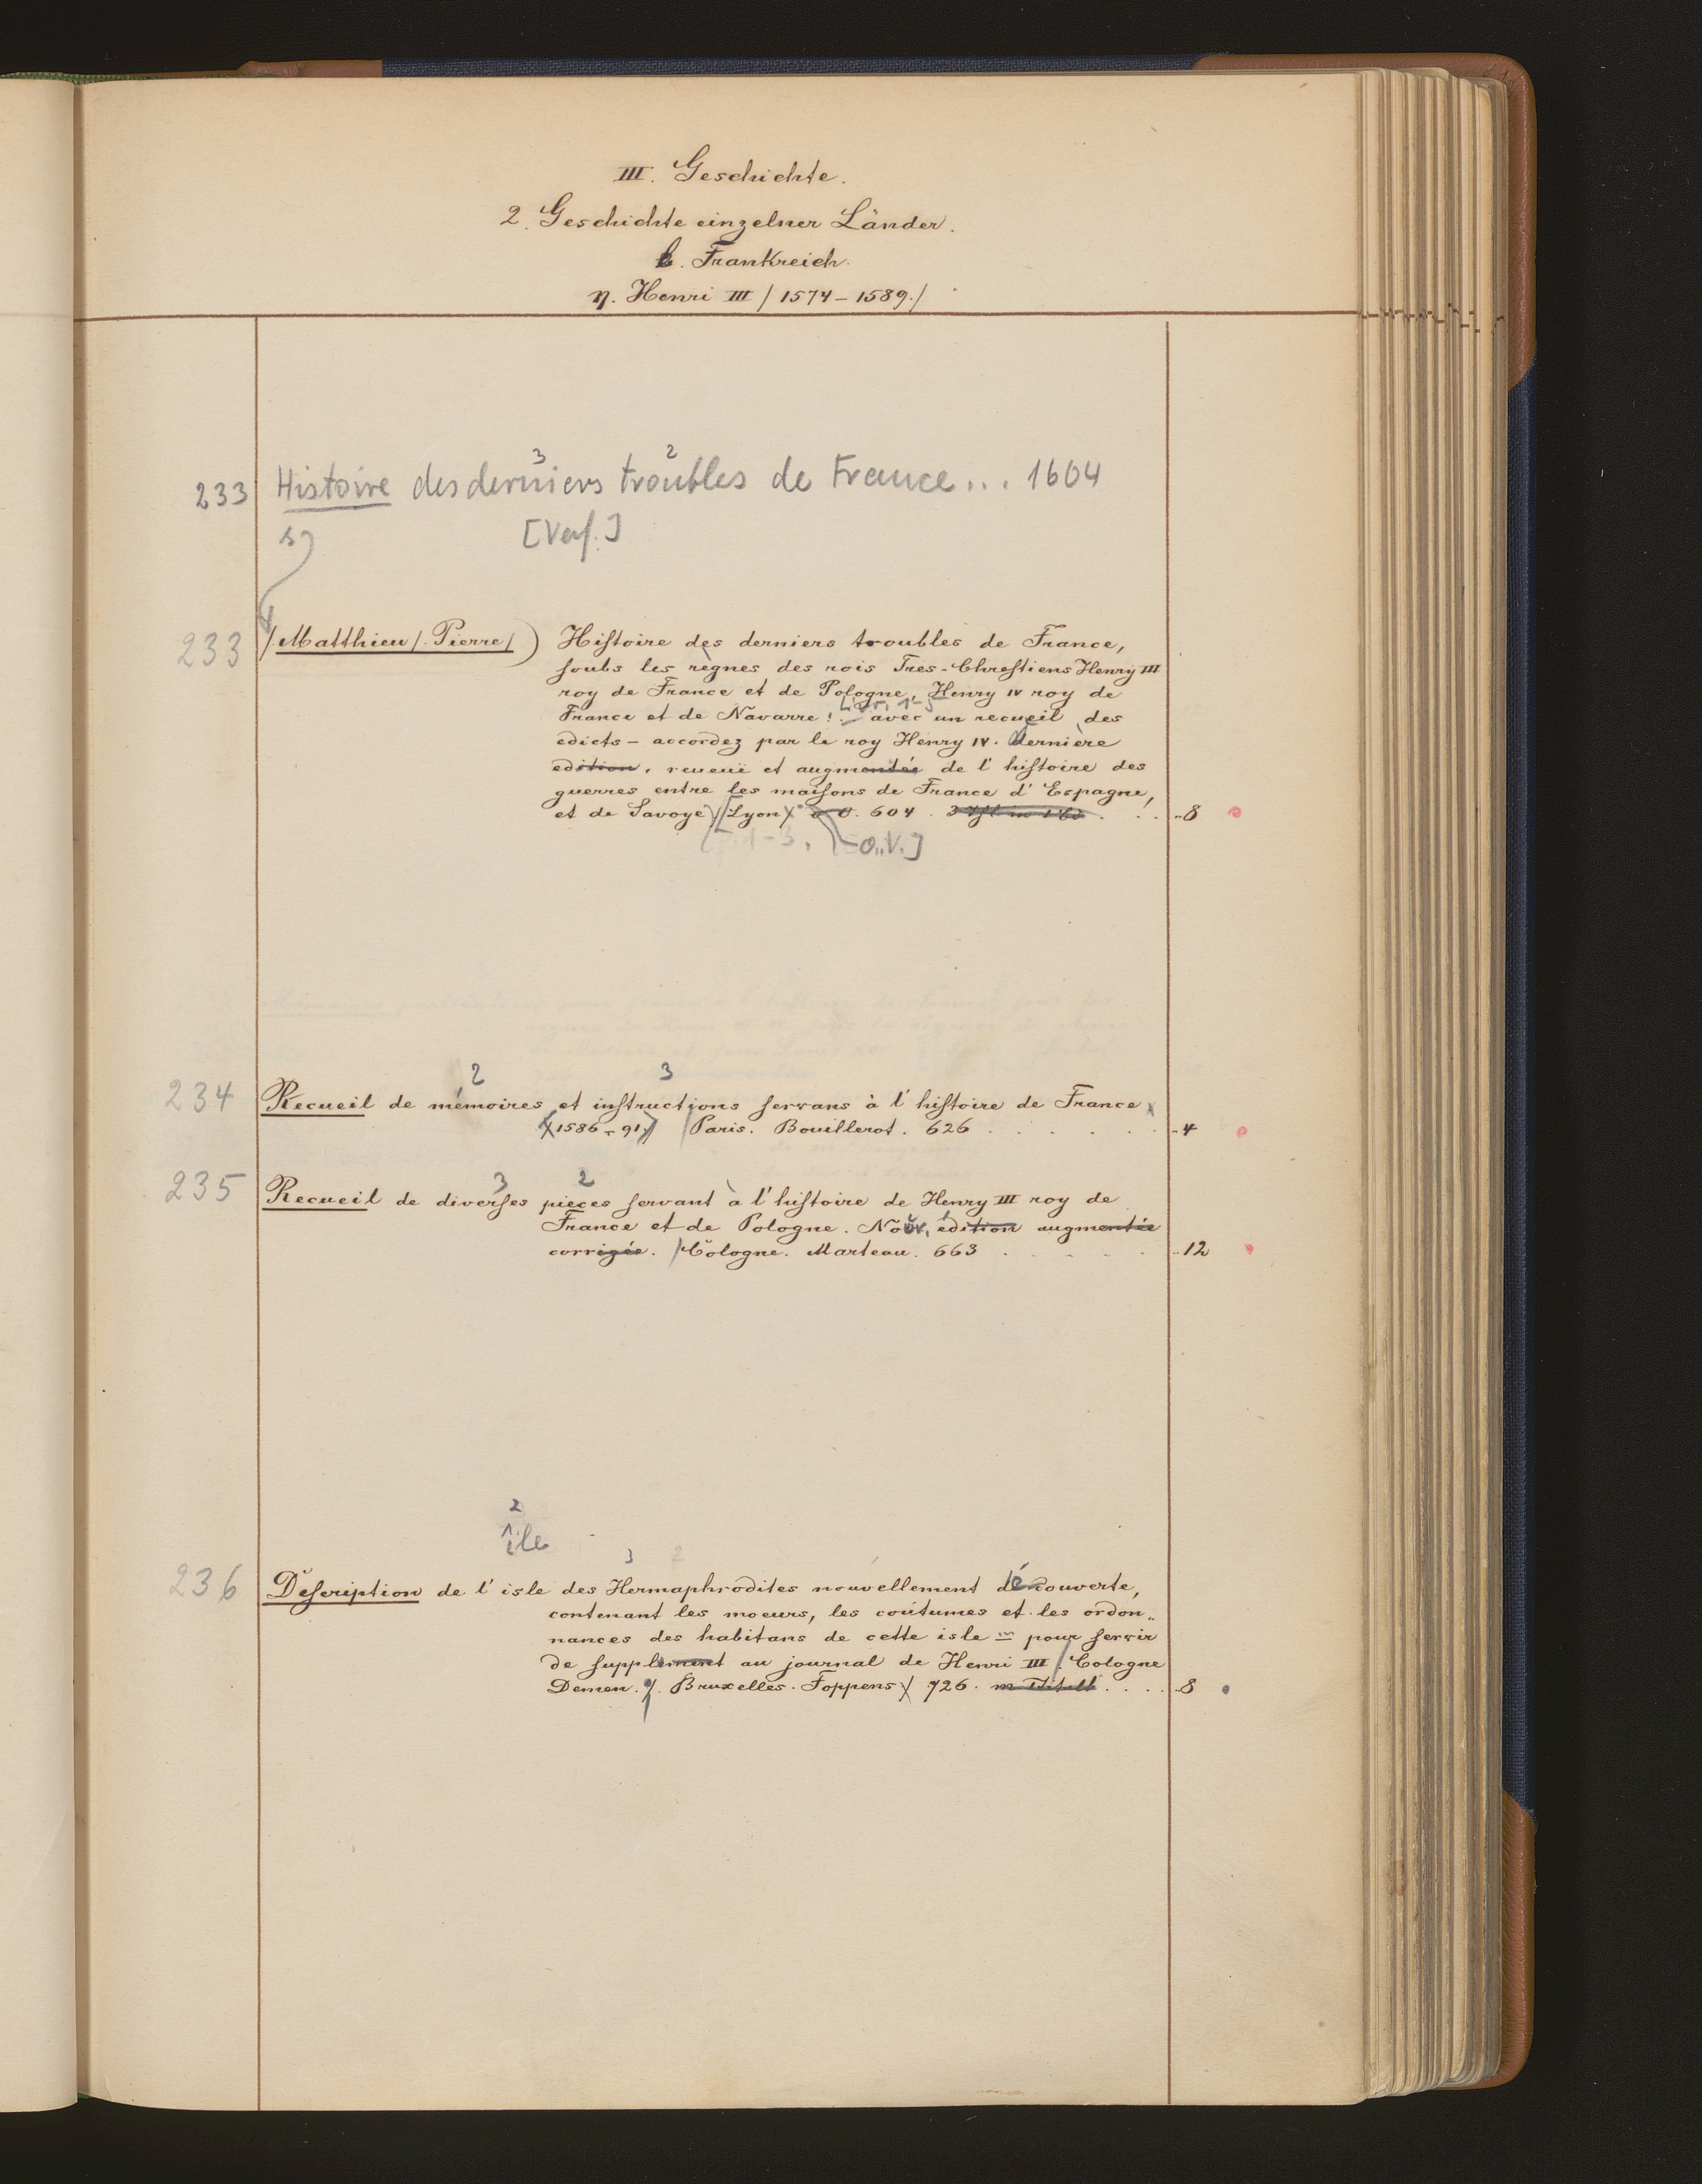 III. Geschichte.
2. Geschichte einzelner Länder.
b. Frankreich.
η. Henri III /1574–1589./
3 2
233 Histoire des derniers troubles de France... 1604
[Verf.]
233 /Matthieu/. Pierre/) Histoire des derniers troubles de France,
soubs les règnes des rois Tres-Chrestiens Henry III
roy de France et de Pologne, Henry IV roy de
Livr. 1-5
France et de Navarre! – avec un recueil des
edicts – accordez par le roy Henry IV. Dernière
edition, reueuë et augmentée de l'histoire des
guerres entre les maisons de France d'Espagne,
et de Savoye) [Lyon] 604. . . .. 8
1-3, O.V.]
2 3
234 Recueil de mémoires et instructions servans à l'histoire de France
(1586–91) /Paris. Bouillerot. 626 . . . . . .. 4
3 2
235 Recueil de diverses pièces servant à l'histoire de Henry III roy de
France et de Pologne. Nouv. édition augmentée
corrigée. /Cologne. Marteau. 663 . . . . . .. 12
2
île
3 2
236 Description de l'isle des Hermaphrodites nouvellement découverte,
contenant les moeurs, les coûtumes et les ordon„
nances des habitans de cette isle pour servir
de supplement au journal de Henri III./ Cologne
Demen. /. Bruxelles. Foppens) 726. . . . .. 8